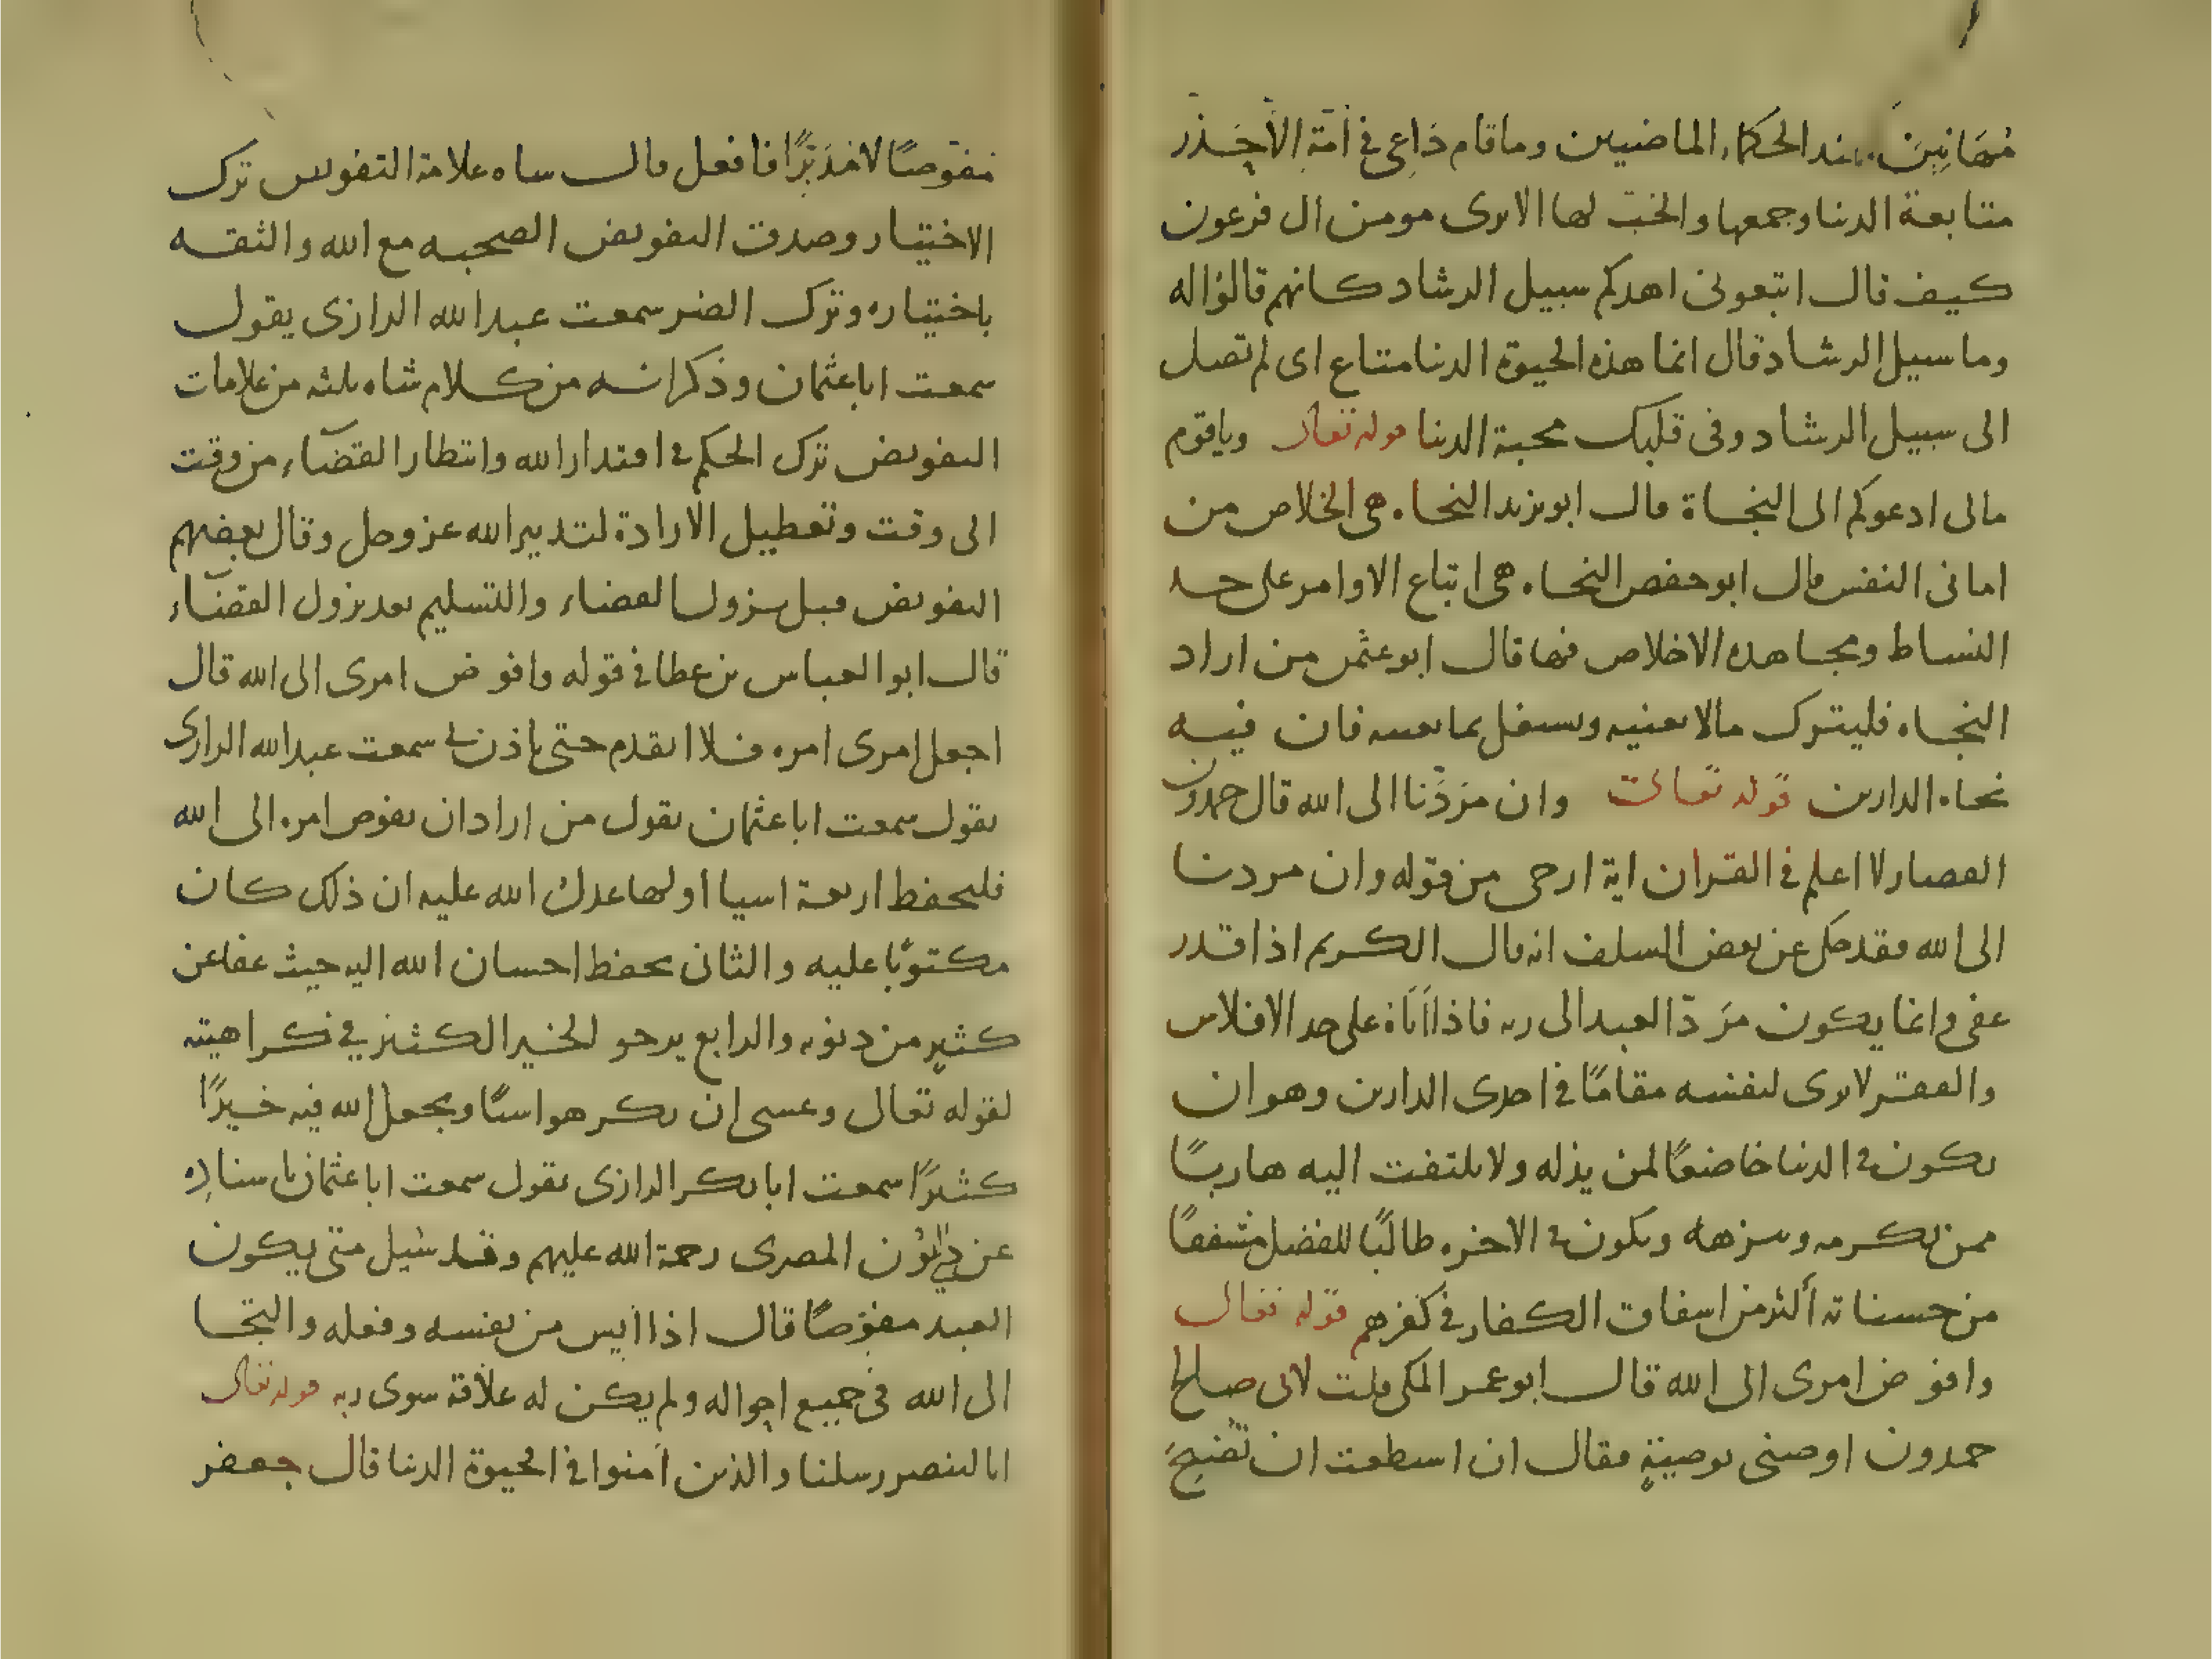 مُهَانِينَ عند الحكماء الماضيين وما قام دَاعِى فى امَّةِ الاَّ حَذر
متابعة الدنيا وجمعها والحُبّ لها الا يرى مومن ال فرعون
كيف قال اتبعونى اهدكم سبيل الرشاد كانهم قالوا له
وما سبيل الرشاد قال انما هذه الحيوة الدنيا متاع اى لم تصل
الى سبيل الرشاد وفى قلبك محبة الدنيا قوله تعالى وياقوم
مالى ادعوكم الى النجاة قال ابو يزيد النجاه هى الخلاص من
امانى النفس قال ابو حفص النجاه هى اتباع الاوامر على حد
النساط ومجاهده الاخلاص فيها قال ابو عثمن من اراد
النجاه فليترك مالا يعنيه ويشغل بما يعنيه فان فيه
نجاه الدارين قوله تعالى وان مَرَدَّنا الى الله قال حمدون
القصار لا اعلم فى القران اية ارجى من قوله وان مردنا
الى الله فقد حكى عن بعض السلف انه قال الكريم اذا قدر
عفى وانما يكون مَرَدّ العبد الى ربه فاذا اَتَاهُ على حد الافلاس
والفقر لا يرى لنفسه مقامًا فى احدى الدارين وهو ان
يكون فى الدنيا خاضعًا لمن يذله ولا يلتفت اليه هاربًا
ممن يكرمه وينزهه ويكون فى الاخره طالبًا للفضل مشفقًا
من حسناته أكثر من اسفاق الكفار فى كفرهم قوله تعالى
وافوض امرى الى الله قال ابو عمر المكى قلت لابى صالح
حمدون اوصنى بوصيّةٍ فقال ان اسطعت ان تُصْبِحَ
مفوّضًا لا مُدَبِّرًا فافعل قال شاه علامة التفويض ترك
الاختيار وصدق التفويض الصحبه مع الله والثقه
باختياره وترك الضر سمعت عبد الله الرازى يقول
سمعت ابا عثمان وذكر انه من كلام شاه ثلثه من علامات
التفويض ترك الحكم فى اقتدار الله وانتظار القضآء من وقت
الى وقت وتعطيل الارادة لتدبير الله عز وجل وقال بعضهم
التفويض قبل نزول القضاء والتسليم بعد نزول القضآء
قال ابو العباس بن عطا فى قوله وافوض امرى الى الله قال
اجعل امرى امره فلا اتقدم حتى ياذن لى سمعت عبد الله الرازى
يقول سمعت ابا عثمان يقول من اراد ان يفوض امره الى الله
فليحفظ اربعة اشيا اولها عدل الله عليه ان ذلك كان
مكتوبًا عليه والثانى يحفظ احسان الله اليه حيث عفا عن
كثيرٍ من ذنوبه والرابع يرجو الخير الكثير فى كراهيته
لقوله تعالى وعسى ان تكرهوا شيًا ويجعل الله فيه خيرًا
كثيرًا سمعت ابا بكر الرازى يقول سمعت ابا عثمان باسناده
عن ذى النون المصرى رحمة الله عليهم وقد سُيل متى يكون
العبد مفوّضًا قال اذا اَيس من نفسه وفعله والتجا
الى الله فى جميع احواله ولم يكن له علاقة سوى ربه قوله تعالى
انا لننصر رسلنا والذين آمنوا فى الحيوة الدنيا قال جعفر